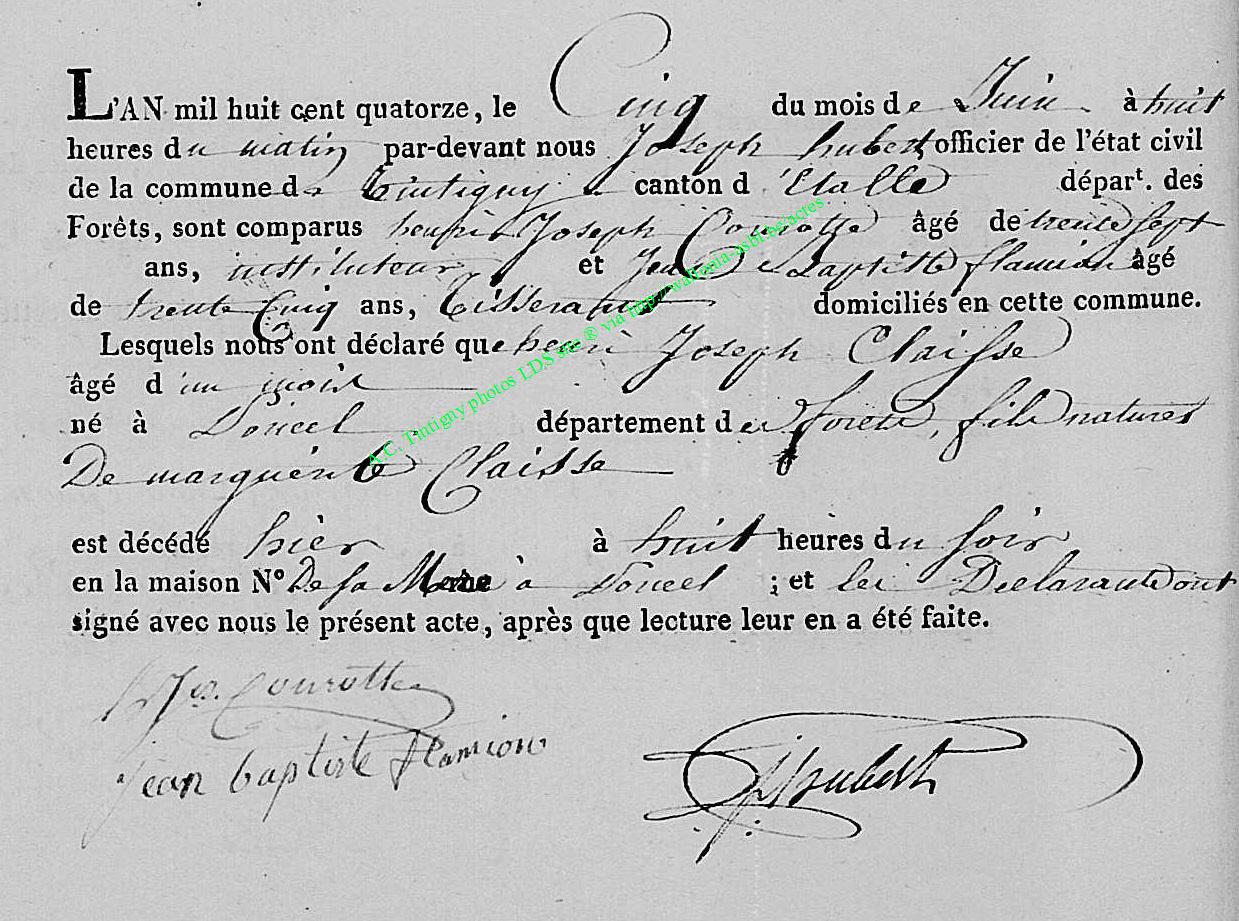 L'AN mil huit cent quatorze, le Cinq du mois de Juin à huit
heures du matin par-devant nous Joseph hubert, officier de l'état civil
de la commune de Tintigny canton d'Etalle départ. des
Forêts, sont comparus henri Joseph Courotte âgé de trente Sept
ans, instituteur et Jean Baptiste flamion âgé
de trente Cinq ans, Tisserant domiciliés en cette commune.
Lesquels nous ont déclaré que henri Joseph Claisse
âgé d'un mois
né à Poncel département des forets, fils naturel
De marguerite Claisse
est décédé hier à huit heures du soir
en la maison N° De sa Mere à Poncel ; et les Declarants ont
signé avec nous le présent acte, après que lecture leur en a été faite.
h Jos. Courotte
jean baptiste flamion
J Hubert
A.C. Tintigny photos LDS site ® via http://wallonia-asbl.be/actes